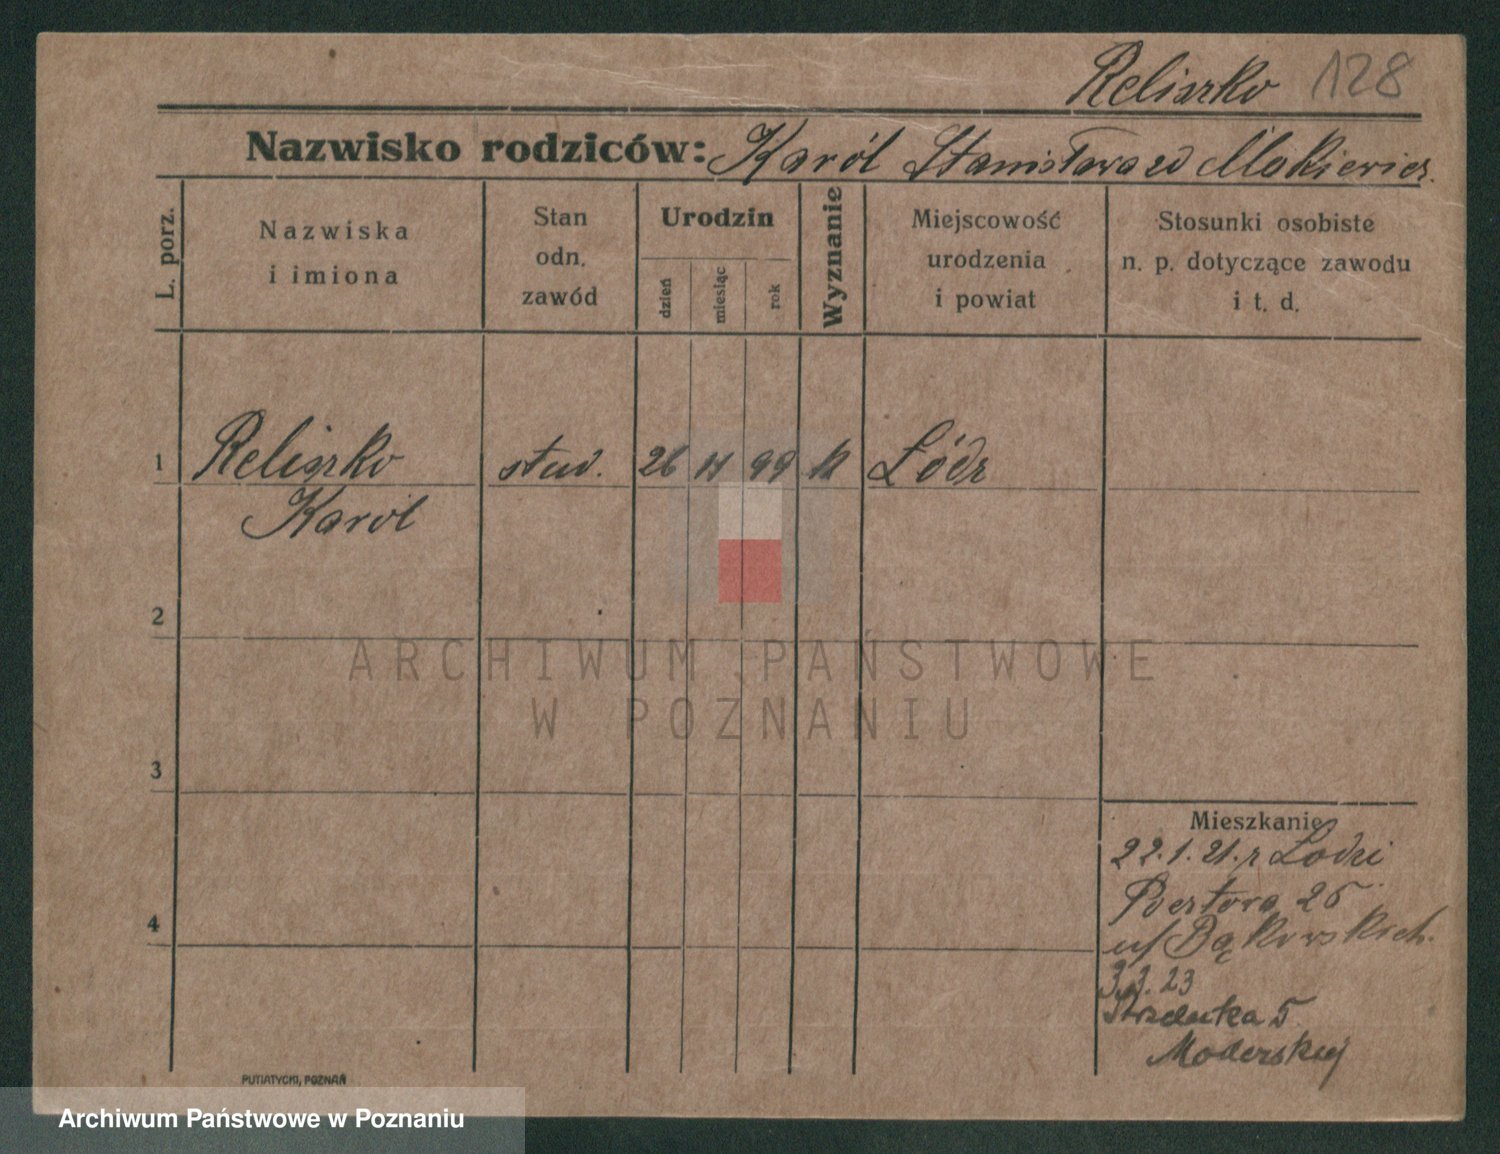 Reliszko 128
Nazwisko rodziców: Karól Stanisława zd Mokiewicz.
L. porz.
Nazwiska
i imiona
Stan
odn.
zawód
Urodzin
dzień
miesiąc
rok
Wyznanie
Miejscowość
urodzenia
i powiat
Stosunki osobiste
n. p. dotyczące zawodu
i t. d.
1 Reliszko stud. 26 99 k Łódz
Karól
2
3
4
ARCHIWUM PAŃSTWOWE
W POZNANIU
Mieszkanie
22.1.21. z Łodzi
25
u/ Bąkowskich.
3.3.23
Strzelecka 5
Moderskiej
PUTIATYCKI, POZNAŃ
Archiwum Państwowe w Poznaniu